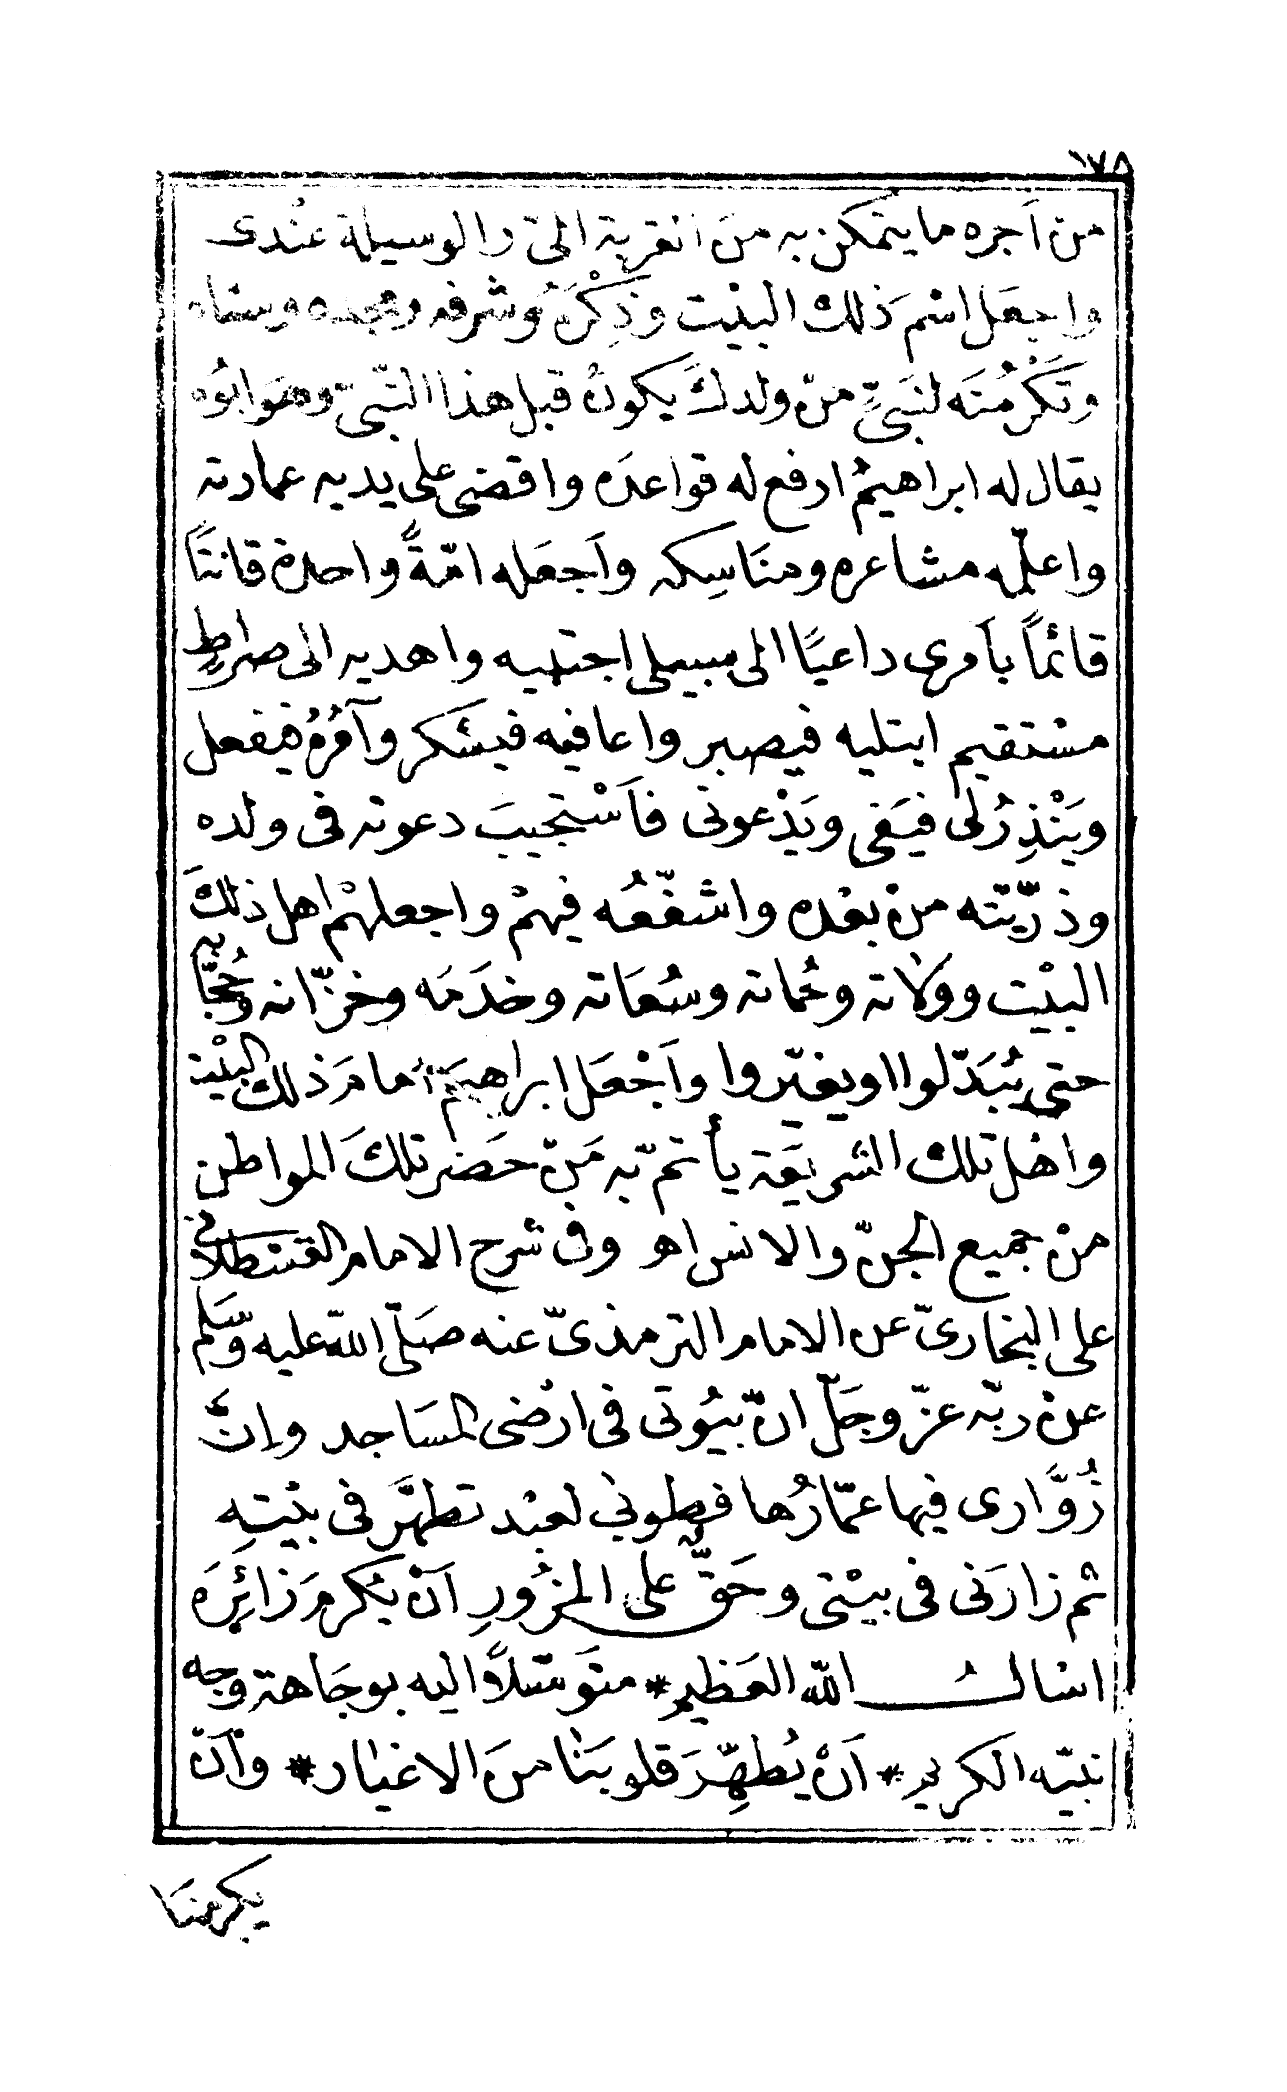 ١٧٨
من اَجره ما يتمكن به منَ القربة الىّ والوسيلة عنْدى
واجعَل اسْم ذلك البيْت وذِكْرَهُ وشرفه ومجده وسناه
وتَكْرُمتَه لنَبىٍّ منْ ولدكَ يكونُ قبل هذا النّبىّ وهوَ ابوُه
يقال له ابراهيمُ ارفع له قواعدَه واقضى على يديه عمارته
واعلّمه مشاعره ومنَاسِكه واَجعَله امّةً واحدة قانتًا
قائمًا باَمرى داعيًا الى سبيلى اجتبيه واهديه الى صراطٍ
مسْتقيم ابتليه فيصبر واعافيه فيشكر وآمُرُهُ فيفعل
ويَنْذِرُ لى فيَفى ويَدْعونى فاَسْتجيبَ دعوته فى ولده
وذرّيّته منْ بعْده واشفّعُه فيهمْ واجعلهْم اهل ذلكَ
البيْت وولاته وحُماته وسُعَاته وخدَمَه وخزّانه وحُجّابه
حتى يُبَدّلوا اويغيّروا واَجْعَل ابراهيمَ امامَ ذلك البيْت
واهْل تلك الشريعَة يأتمّ به مَنْ حَضر تلكَ المواطن
منْ جميع الجنّ والانس اهـ وفى شرح الامام القسْطلانى
على البخارىّ عن الامام الترمذىّ عنه صَلّى الله عليه وَسَلم
عنْ ربّه عزّ وجَلّ انّ بيُوتى فى ارْضى المسَاجد وانّ
زُوَّارى فيها عمّارُها فطوبى لعبْد تطهَّرَ فى بيْتِهِ
ثم زارَنى فى بيْتى وحَقٌّ على المزُورِ اَنْ يُكرمَ زائِرَه
اسْالُ الله العَظيم * متوَسّلاً اليه بوجَاهة وجه
نبيّه الكريم * اَنْ يُطهِّرَ قلوبَنا منَ الاغيار * واَنْ
يكرمنَا